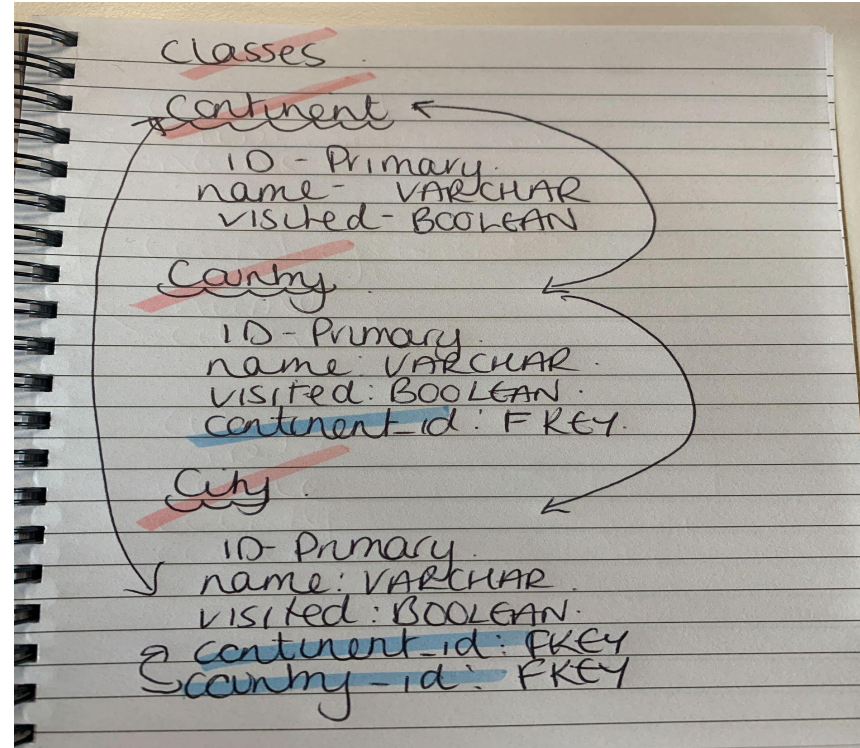 Classes.
Continent
ID - Primary.
name - VARCHAR
visited - BOOLEAN
Country.
ID - Primary.
name: VARCHAR.
visited: BOOLEAN.
continent_id: FKEY.
City.
ID - Primary.
name: VARCHAR.
visited: BOOLEAN.
continent_id: FKEY
country_id: FKEY